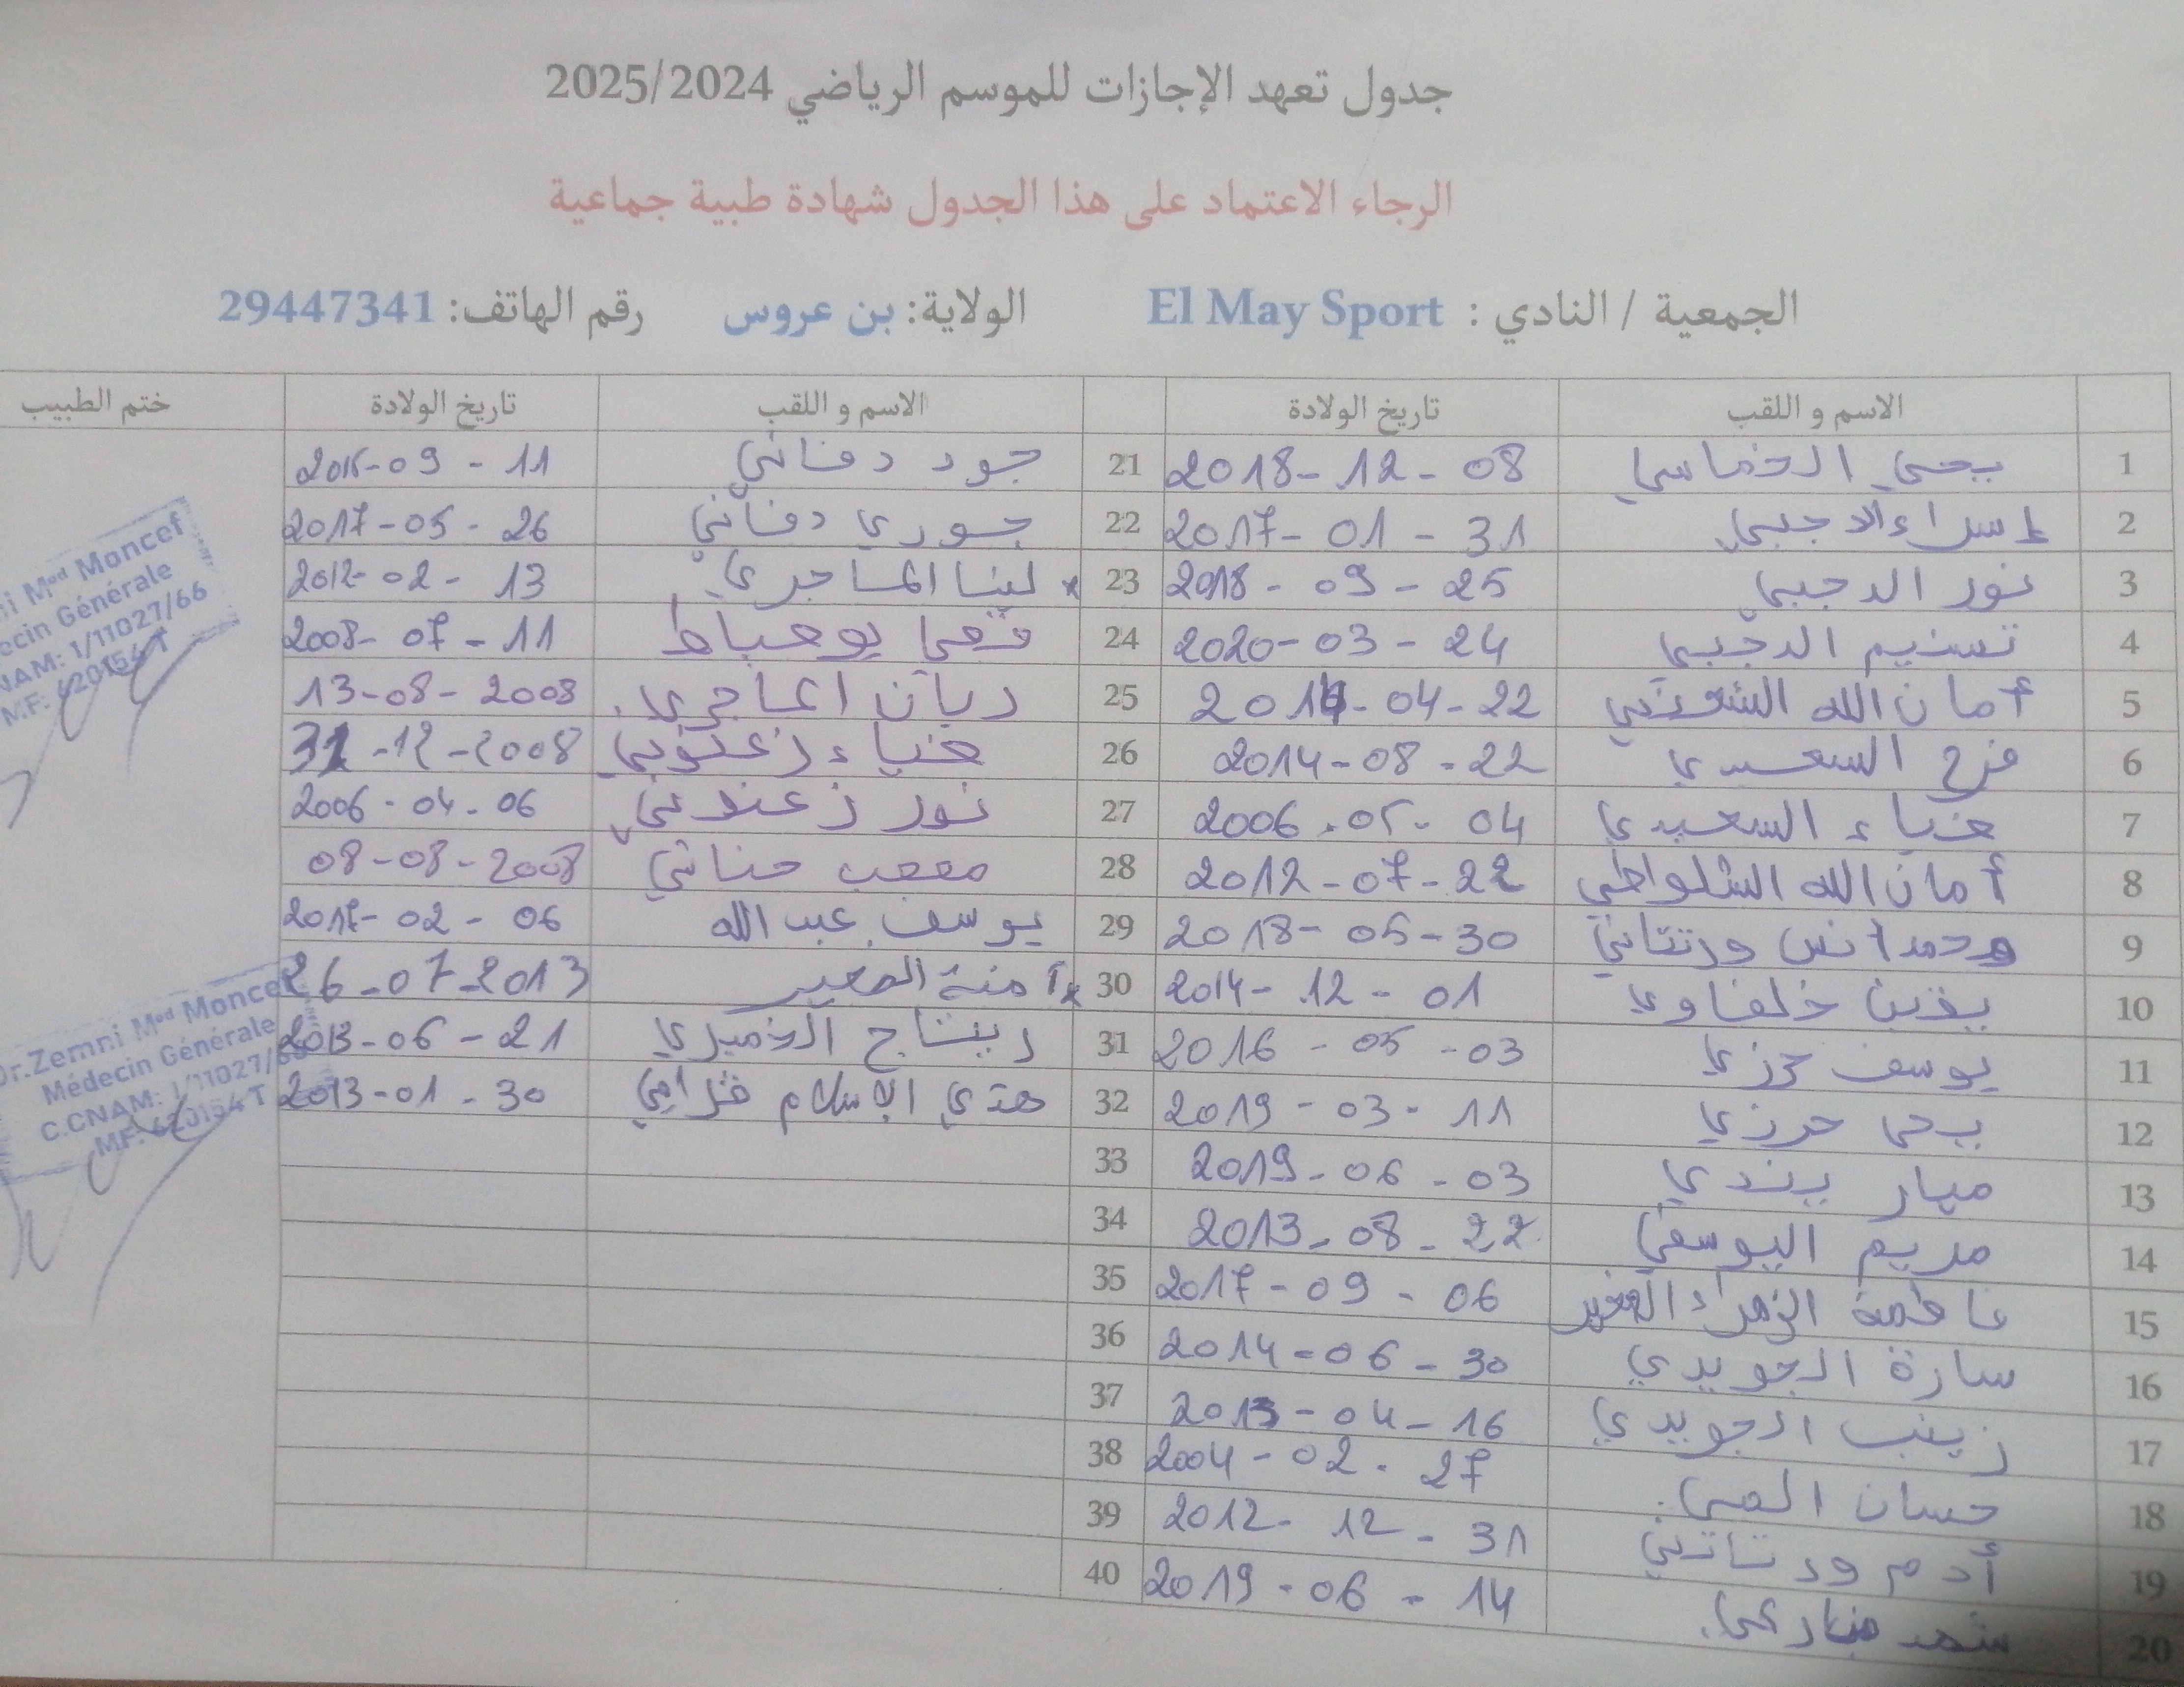 جدول تعهد الإجازات للموسم الرياضي 2025/2024
الرجاء الاعتماد على هذا الجدول شهادة طبية جماعية
الجمعية / النادي : El May Sport الولاية: بن عروس رقم الهاتف: 29447341
الاسم و اللقب تاريخ الولادة الاسم و اللقب تاريخ الولادة ختم الطبيب
1 يحي الخماسي 2018-12-08
2 إسراء الدجبي 2017-01-31
3 نور الدجبي 2018-09-25
4 تسنيم الدجبي 2020-03-24
5 أمان الله 04-22
6 فرح السعيدي 2014-08-22
7 ضياء السعيدي 2006-05-04
8 أمان الله الشلواطي 2012-07-22
9 محمد انس ورتتاني 2018-05-30
10 يقين خلفاوي 2014-12-01
11 يوسف حرزي 2016-05-03
12 يحي حرزي 2019-03-11
13 ميار بندي 2019-06-03
14 مريم اليوسفي 2013-08-22
15 فاطمة الزهراء الصغير 2017-09-06
16 سارة الجويدي 2014-06-30
17 زينب الجويدي 04-16
18 حسان المي 2004-02-27
19 أدم ورتاتني 2012-12-31
20 شهد 2019-06-14
21 جود دفاني 09-11
22 جوري دفاني 2017-05-26
23 لينا الماجري 2012-02-13
24 بوعياط 2008-07-11
25 ريان الماجري 13-08-2008
26 ضياء زعنوني 12-2008
27 نور زعنوني 2006-04-06
28 مصعب حناني 08-08-2008
29 يوسف عبد الله 2017-02-06
30 آمنة الصغير 26-07-2013
31 ريتاج الخميري 2013-06-21
32 هدي الإسلام 2013-01-30
33
34
35
36
37
38
39
40
Med Moncef
Médecin Générale
CNAM: 1/11027/66
M.F: 620154 T
Dr.Zemni Med Moncef
Médecin Générale
C.CNAM: 1/11027/66
MF: 620154 T